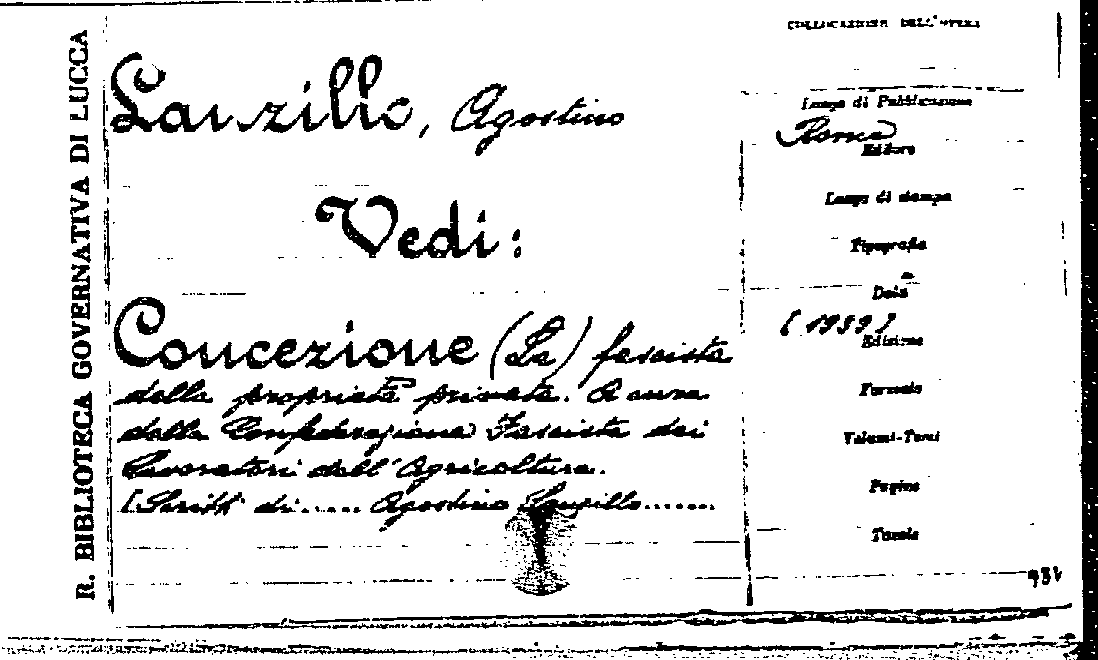 R. BIBLIOTECA GOVERNATIVA DI LUCCA
Lanzillo, Agostino
Vedi:
Concezione (La) fascista
della proprietà privata. A cura
della Confederazione Fascista dei
Lavoratori dell'Agricoltura.
[Scritti di..... Agostino Lanzillo.......
COLLOCAZIONE DELL'OPERA
Luogo di Pubblicazione
Roma
Editore
Luogo di stampa
Tipografia
Data
[1939]
Edizione
Formato
Volumi-Tomi
Pagine
Tavole